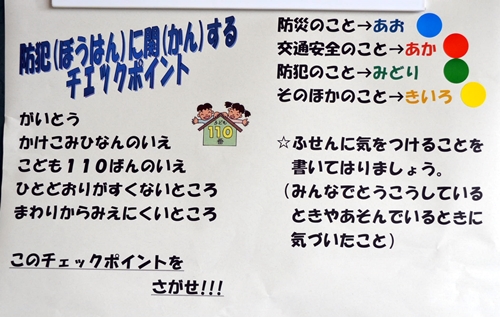 防犯(ぼうはん)に関(かん)する
チェックポイント
がいとう
かけこみひなんのいえ
こども110ばんのいえ
ひとどおりがすくないところ
まわりからみえにくいところ
このチェックポイントを
さがせ!!!
こども
110
番
防災のこと→あお
交通安全のこと→あか
防犯のこと→みどり
そのほかのこと→きいろ
☆ふせんに気をつけることを
書いてはりましょう。
(みんなでとうこうしている
ときやあそんでいるときに
気づいたこと)